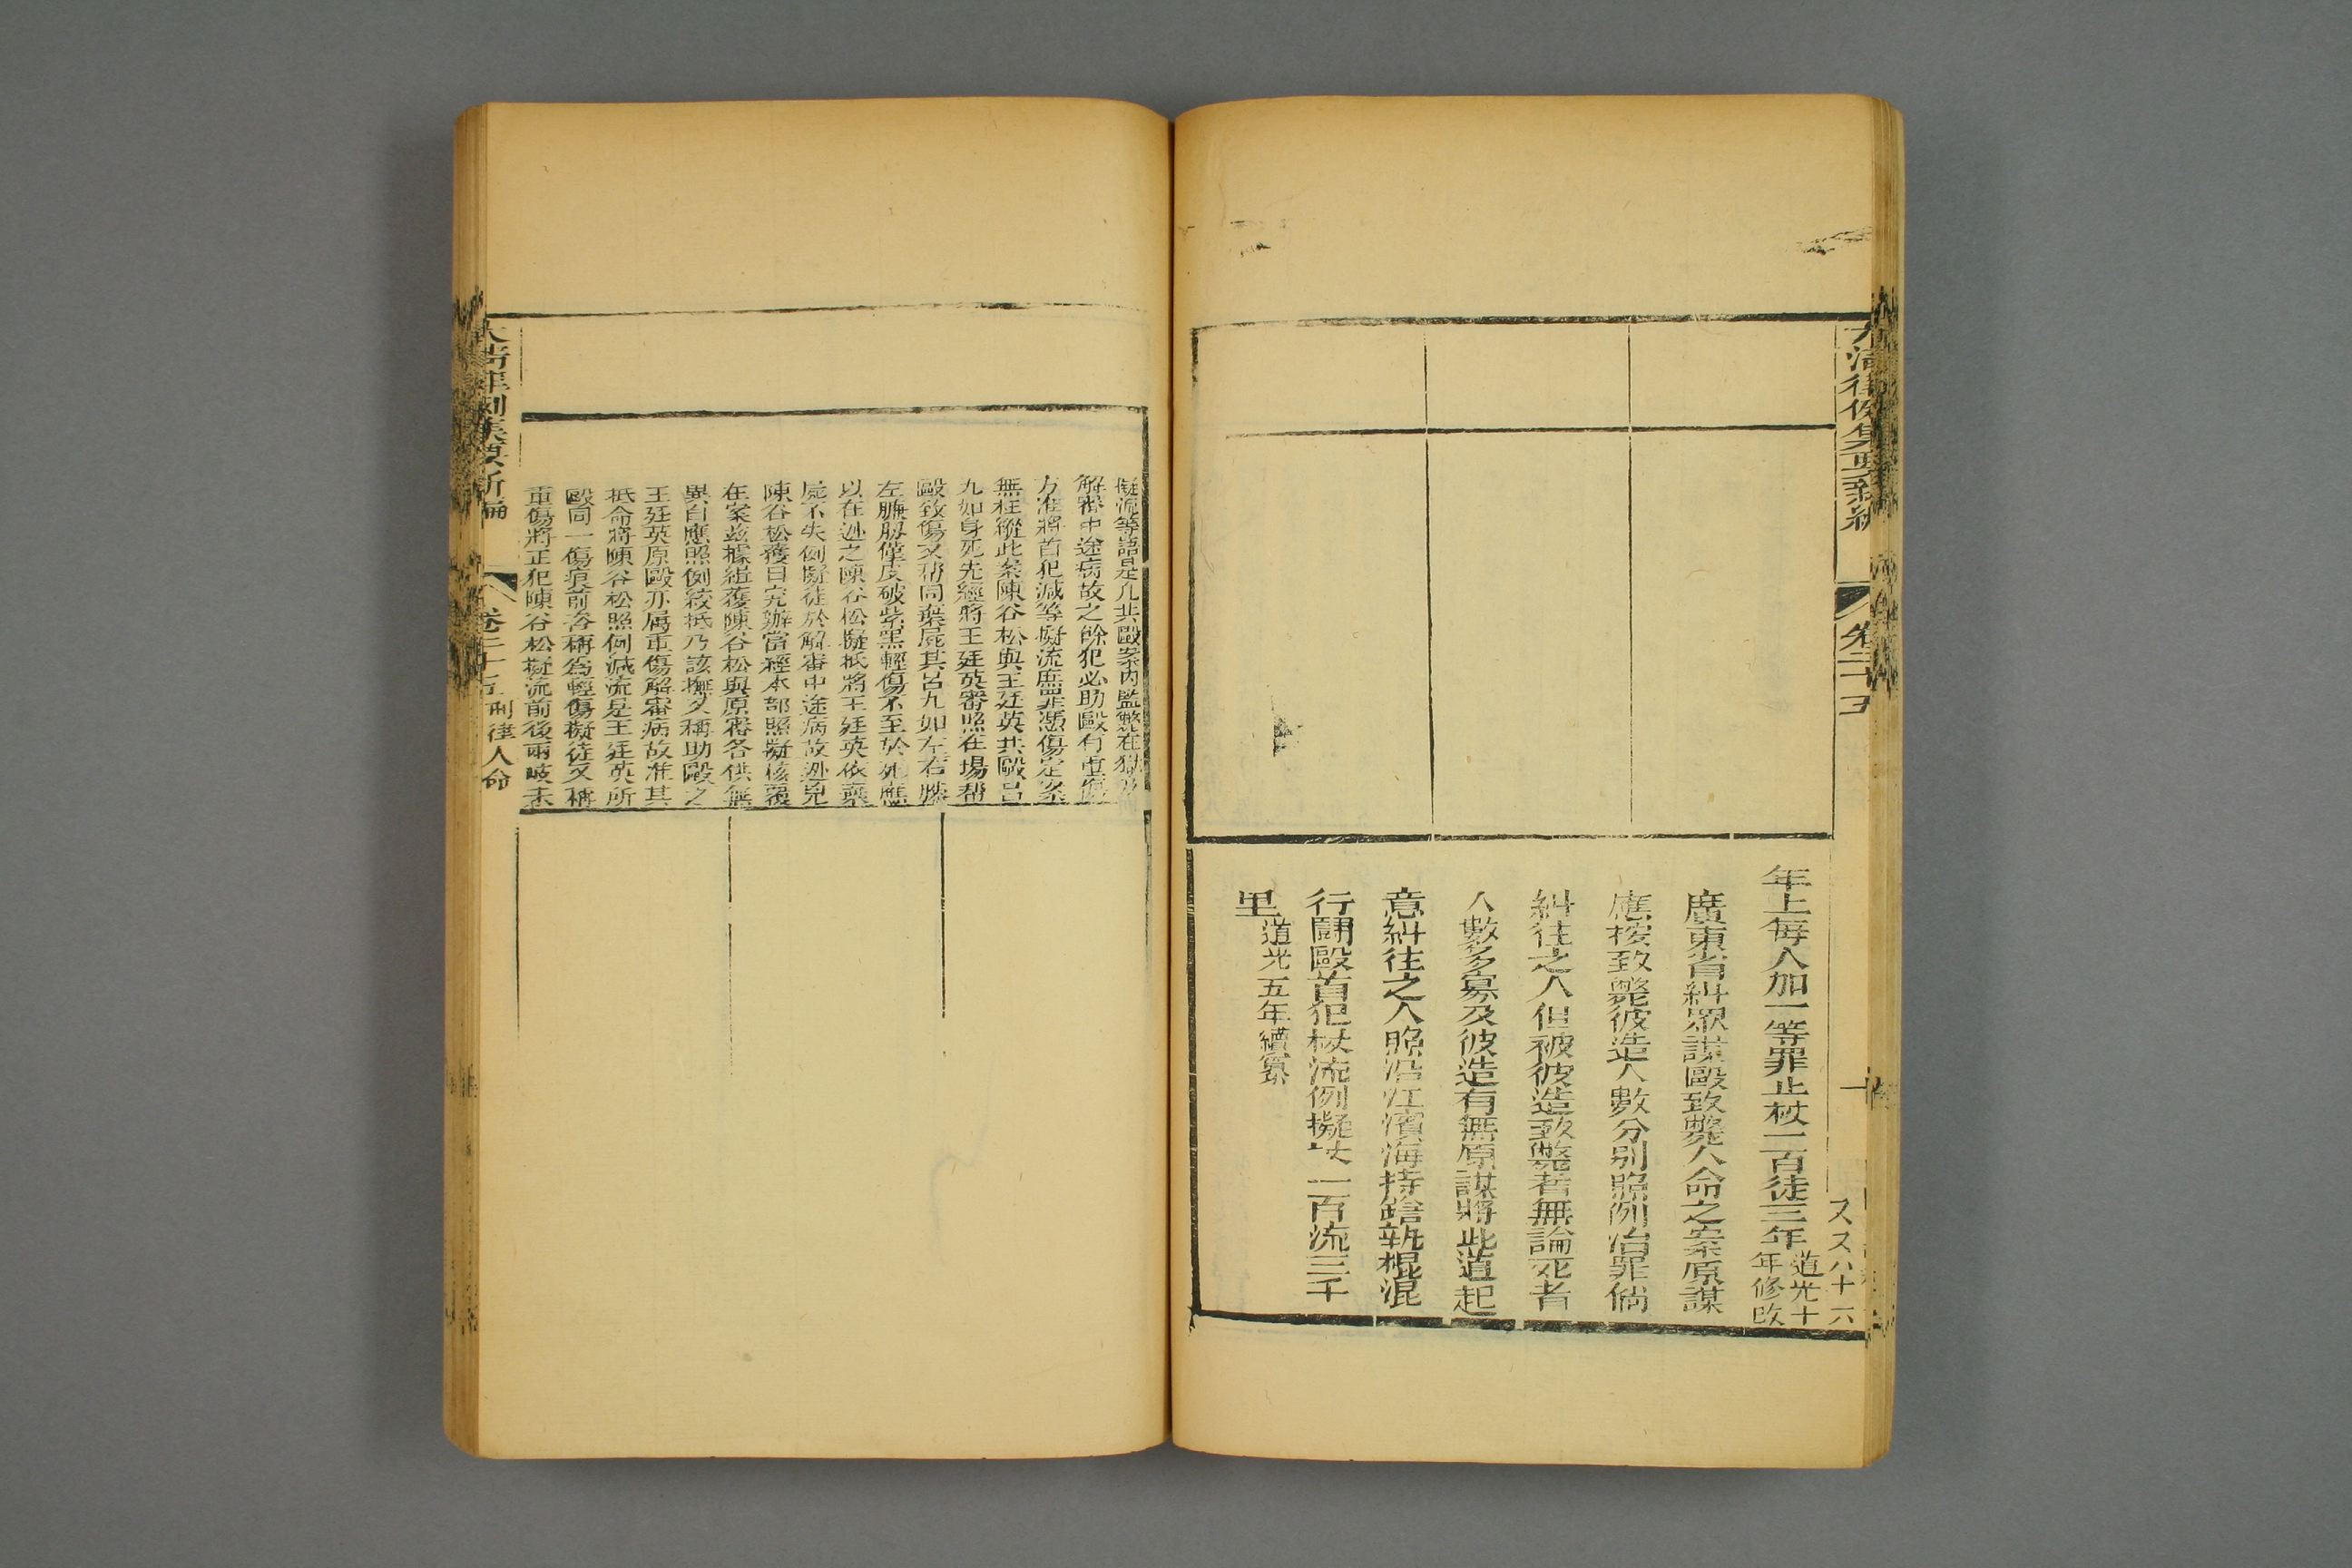 大清律例集要新編
卷二十五
年上每人加一等罪止杖一百徒三年
道光十六
年修改
廣東省糾眾謀毆致斃人命之案原謀
應按致斃彼造人數分別照例治罪倘
糾往之人但被彼造致斃者無論死者
人數多寡及彼造有無原謀將此造起
意糾往之人照沿江濱海持鎗執棍混
行鬭毆首犯杖流例擬杖一百流三千
里
道光五年續纂
擬流等語是凡共毆案內監斃在獄及
解審中途病故之餘犯必助毆有重傷
方准將首犯減等擬流應憑傷定案
無枉縱此案陳谷松與王廷英共毆呂
九如身死先經將王廷英審照在場幫
毆致傷又幫同棄屍其呂九如左右膝
左臁肕僅皮破紫黑輕傷不至於死應
以在逃之陳谷松擬抵將王廷英依棄
屍不失例擬徒於解審中途病故逃兇
陳谷松獲日究辦當經本部照擬核覆
在案茲據緝獲陳谷松與原審各供無
異自應照例絞抵乃該撫又稱助毆之
王廷英原毆亦屬重傷解審病故准其
抵命將陳谷松照例減流是王廷英所
毆同一傷痕前咨稱為輕傷擬徒又稱
重傷將正犯陳谷松擬流前後兩岐未
卷二十五
刑律人命